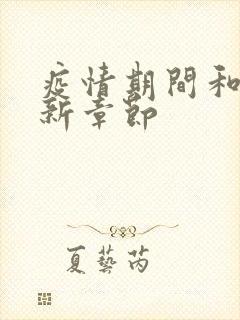 疫情期間和
新章節
夏藝芮